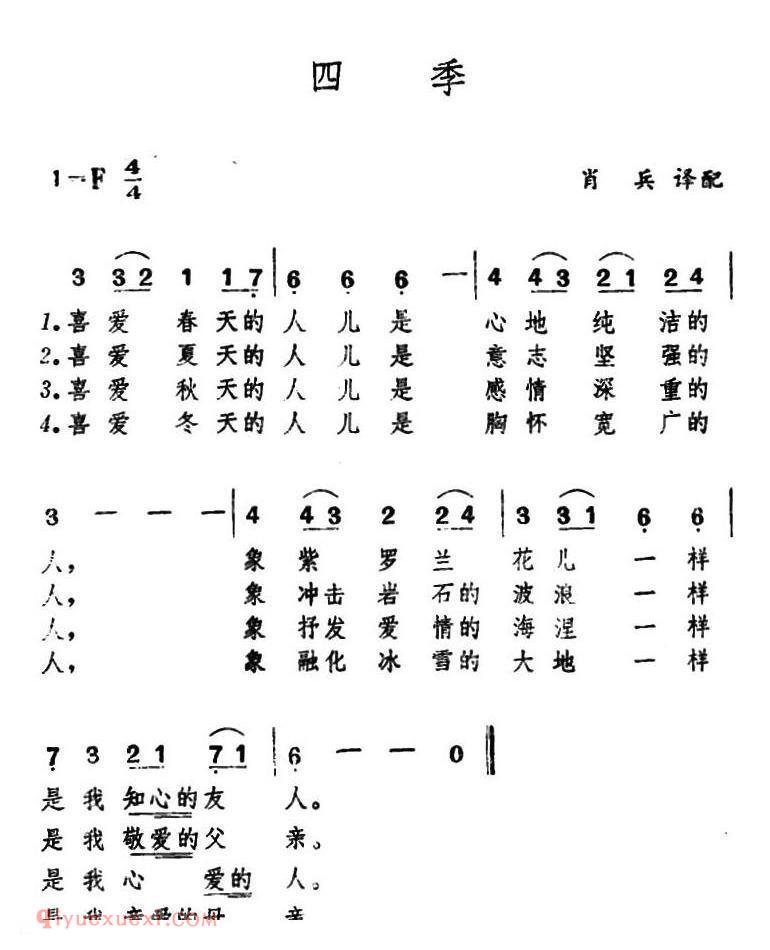 四 季
1=F 4/4 肖 兵 译配
3 32 1 17 | 6 6 6 — | 4 43 21 24 |
1.喜爱 春天的人儿是 心地纯洁的
2.喜爱 夏天的人儿是 意志坚强的
3.喜爱 秋天的人儿是 感情深重的
4.喜爱 冬天的人儿是 胸怀宽广的
3 — — — | 4 43 2 24 | 3 31 6 6 |
人, 象紫罗兰花儿一样
人, 象冲击岩石的波浪一样
人, 象抒发爱情的海涅一样
人, 象融化冰雪的大地一样
7 3 21 71 | 6 — — 0 ‖
是我知心的友 人。
是我敬爱的父 亲。
是我心 爱的 人。
是我亲爱的母 亲
qiyuexuexi.com